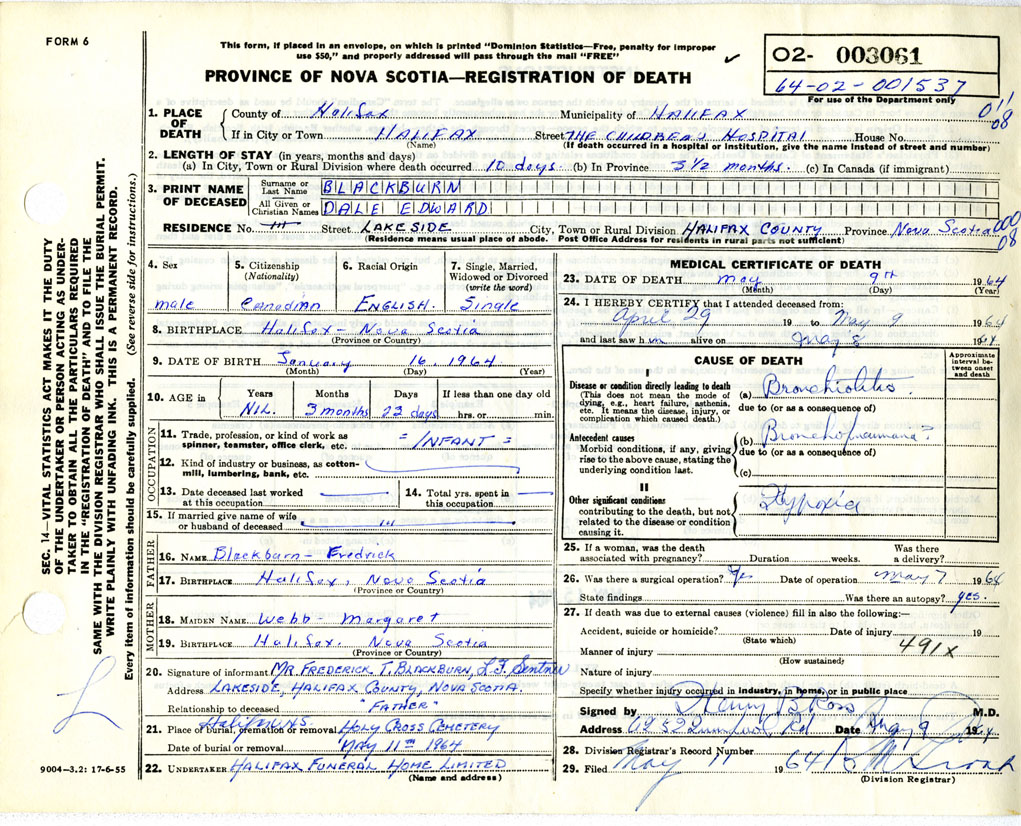 FORM 6
This form, if placed in an envelope, on which is printed "Dominion Statistics—Free, penalty for improper
use $50," and properly addressed will pass through the mail "FREE"
PROVINCE OF NOVA SCOTIA—REGISTRATION OF DEATH
02- 003061
64-02-001537
For use of the Department only
SEC. 14—VITAL STATISTICS ACT MAKES IT THE DUTY
OF THE UNDERTAKER OR PERSON ACTING AS UNDER-
TAKER TO OBTAIN ALL THE PARTICULARS REQUIRED
IN THE "REGISTRATION OF DEATH" AND TO FILE THE
SAME WITH THE DIVISION REGISTRAR WHO SHALL ISSUE THE BURIAL PERMIT.
WRITE PLAINLY WITH UNFADING INK. THIS IS A PERMANENT RECORD.
Every item of information should be carefully supplied. (See reverse side for instructions.)
1. PLACE OF DEATH
County of Halifax Municipality of HALIFAX
If in City or Town HALIFAX Street THE CHILDREN'S HOSPITAL House No.
(Name) (If death occurred in a hospital or institution, give the name instead of street and number)
2. LENGTH OF STAY (in years, months and days)
(a) In City, Town or Rural Division where death occurred 10 days (b) In Province 3 1/2 months. (c) In Canada (if immigrant)
3. PRINT NAME OF DECEASED
Surname or Last Name BLACKBURN
All Given or Christian Names DALE EDWARD
RESIDENCE No. Street LAKESIDE City, Town or Rural Division HALIFAX COUNTY Province Nova Scotia
(Residence means usual place of abode. Post Office Address for residents in rural parts not sufficient)
4. Sex male
5. Citizenship (Nationality) Canadian
6. Racial Origin ENGLISH.
7. Single, Married, Widowed or Divorced (write the word) Single
8. BIRTHPLACE Halifax - Nova Scotia
(Province or Country)
9. DATE OF BIRTH January 16, 1964
(Month) (Day) (Year)
10. AGE in Years NIL. Months 3 months Days 23 days If less than one day old hrs. or min.
OCCUPATION
11. Trade, profession, or kind of work as spinner, teamster, office clerk, etc. = INFANT =
12. Kind of industry or business, as cotton-mill, lumbering, bank, etc.
13. Date deceased last worked at this occupation
14. Total yrs. spent in this occupation
15. If married give name of wife or husband of deceased
FATHER
16. NAME Blackburn - Fredrick
17. BIRTHPLACE Halifax, Nova Scotia
(Province or Country)
MOTHER
18. MAIDEN NAME Webb - Margaret
19. BIRTHPLACE Halifax. Nova Scotia
(Province or Country)
20. Signature of informant MR. FREDERICK T. BLACKBURN,
Address LAKESIDE, HALIFAX COUNTY, NOVA SCOTIA.
Relationship to deceased "FATHER"
21. Place of burial, cremation or removal HOLY CROSS CEMETERY
Date of burial or removal MAY 11th 1964
22. UNDERTAKER HALIFAX FUNERAL HOME LIMITED
(Name and address)
9004-3.2: 17-6-55
MEDICAL CERTIFICATE OF DEATH
23. DATE OF DEATH May 9th 1964
(Month) (Day) (Year)
24. I HEREBY CERTIFY that I attended deceased from:
April 29 19 to May 9 1964
and last saw him alive on May 8 1964
CAUSE OF DEATH
Approximate interval between onset and death
I
Disease or condition directly leading to death
(This does not mean the mode of dying, e.g., heart failure, asthenia, etc. It means the disease, injury, or complication which caused death.)
(a) Bronchiolitis
due to (or as a consequence of)
Antecedent causes
Morbid conditions, if any, giving rise to the above cause, stating the underlying condition last.
(b) Bronchopneumonia?
due to (or as a consequence of)
(c)
II
Other significant conditions
contributing to the death, but not related to the disease or condition causing it.
Hypoxia
25. If a woman, was the death associated with pregnancy? Duration weeks. Was there a delivery?
26. Was there a surgical operation? Yes Date of operation May 7 1964
State findings Was there an autopsy? yes.
27. If death was due to external causes (violence) fill in also the following:—
Accident, suicide or homicide? Date of injury 19
(State which)
491X
Manner of injury
(How sustained)
Nature of injury
Specify whether injury occurred in industry, in home, or in public place
Signed by Henry B Ross M.D.
Address Date 9 1964
28. Division Registrar's Record Number
29. Filed May 11 1964
(Division Registrar)